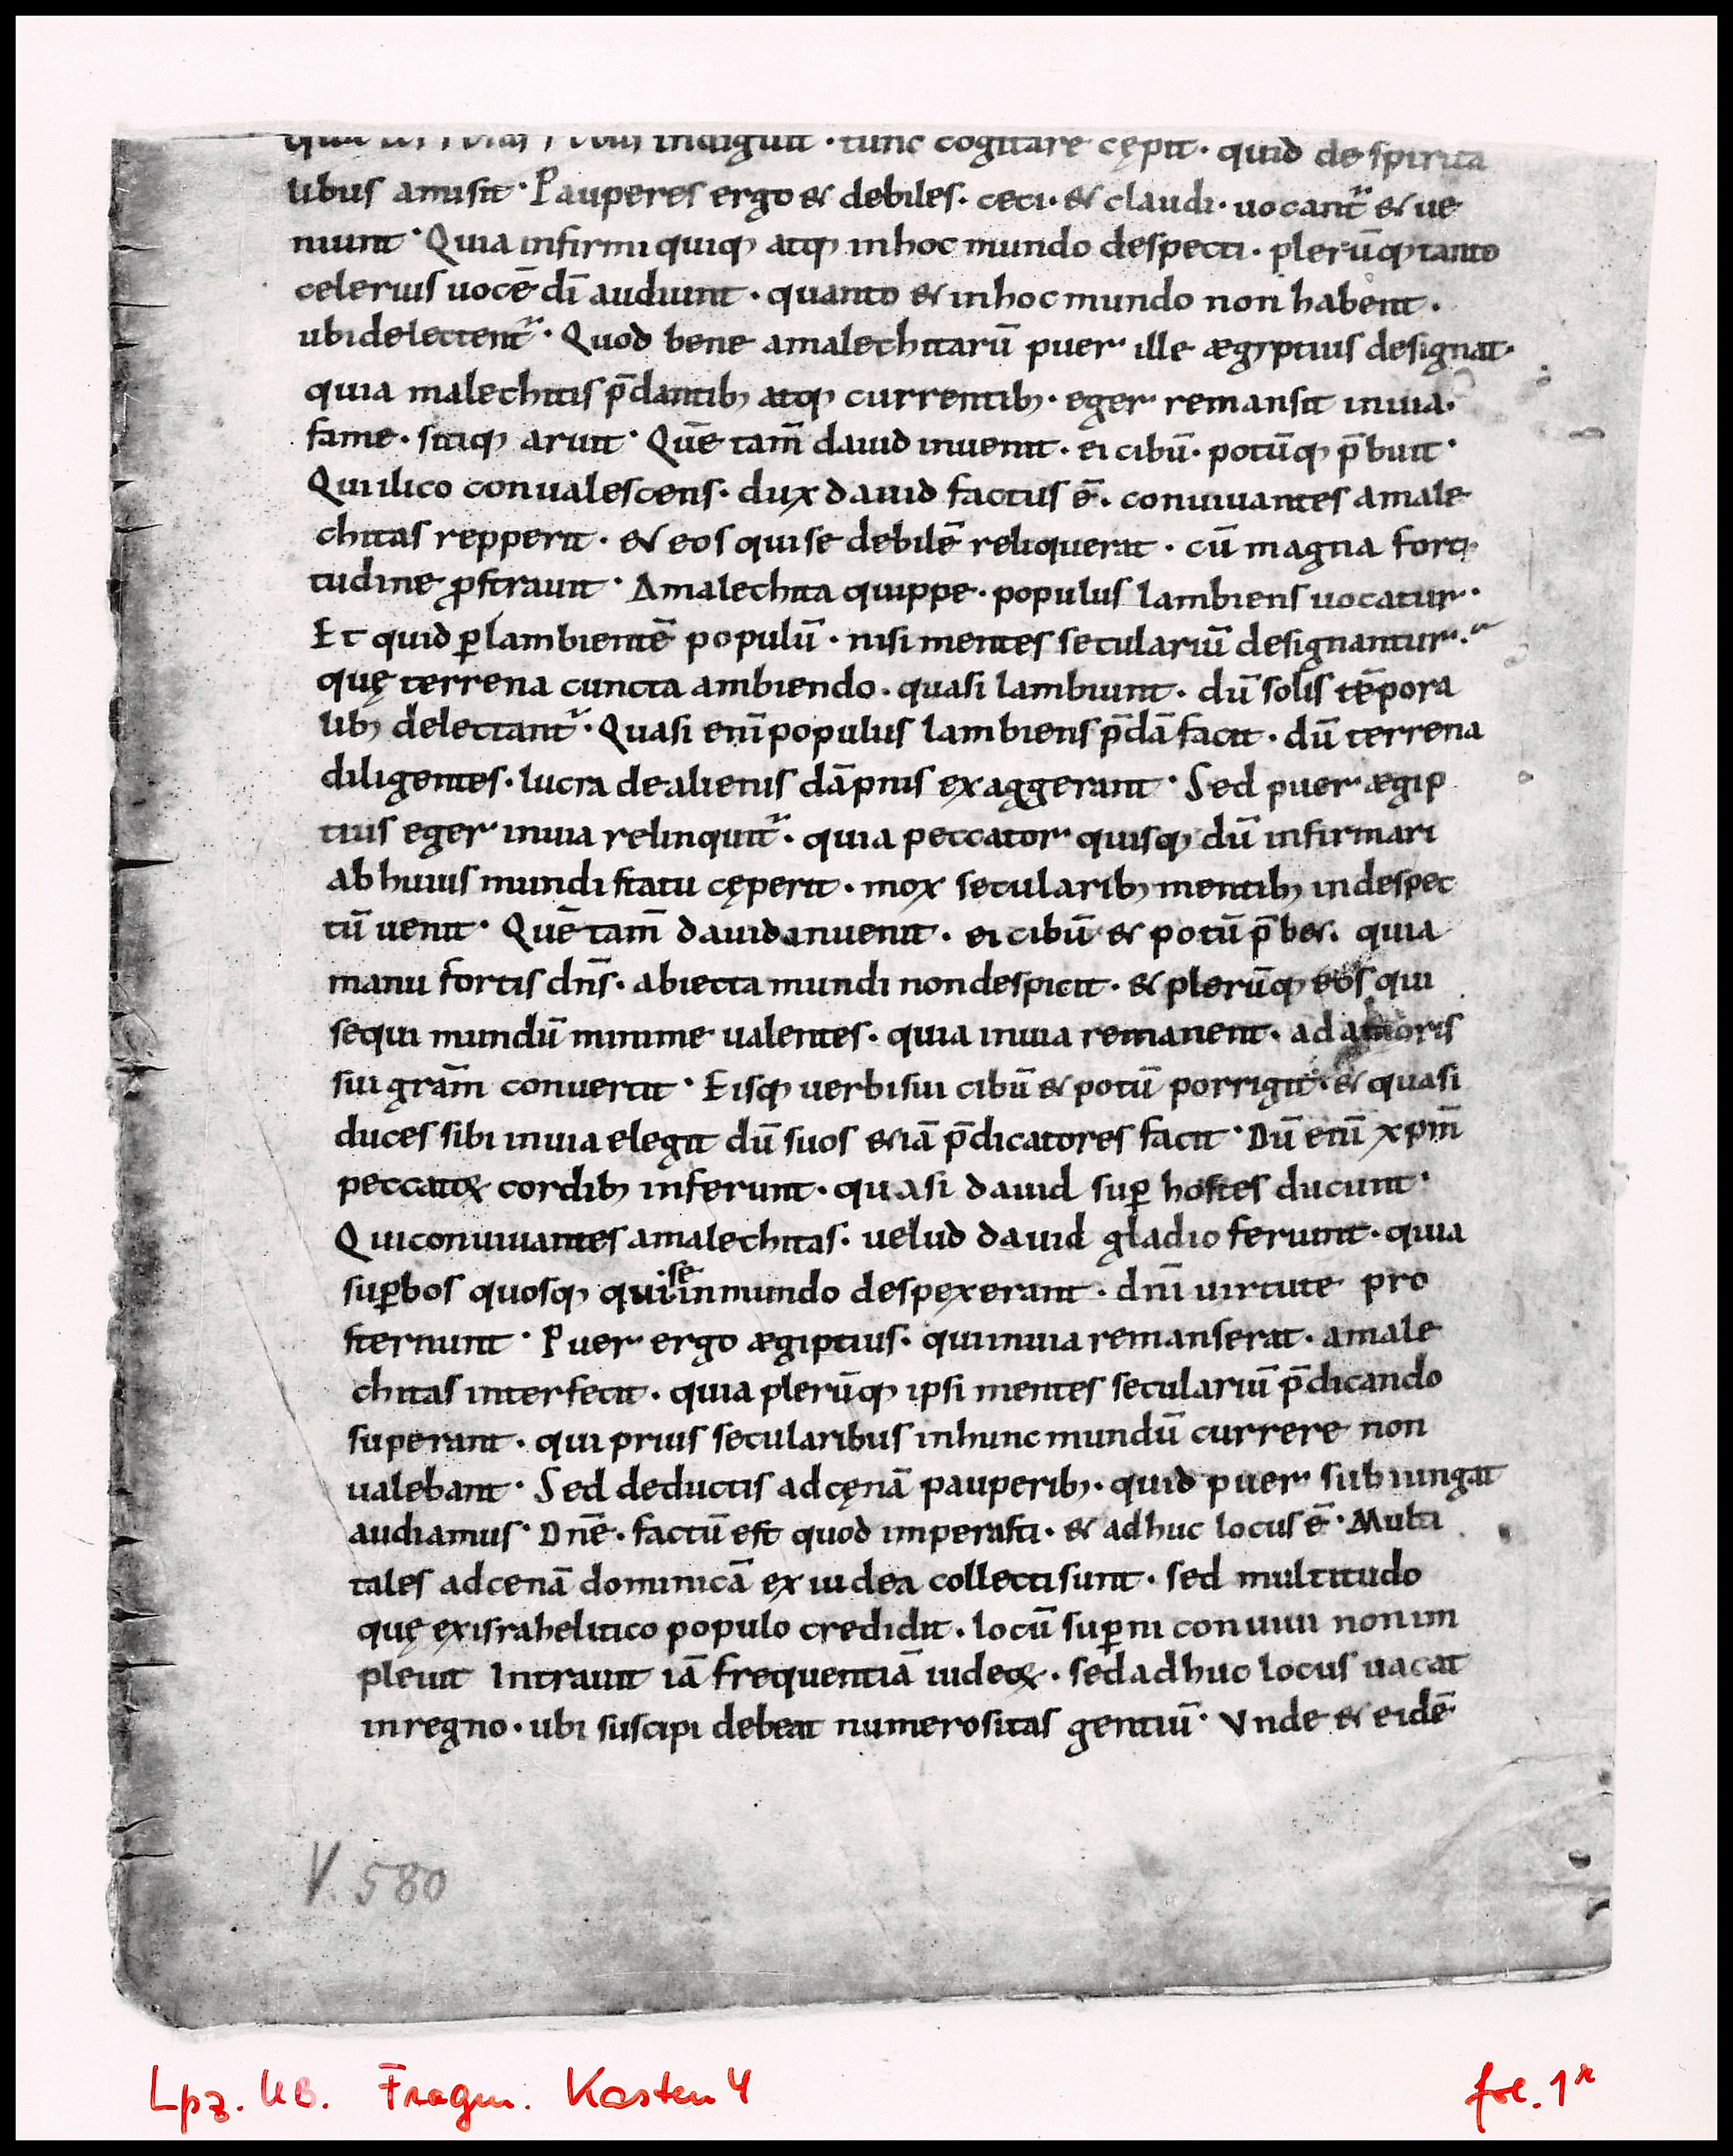 indiguit · tunc cogitare cępit · quid de spirita
libus amisit · Pauperes ergo & debiles · ceci · & claudi · uocant᷑ & ue
niunt · Quia infirmi quiq; atq; in hoc mundo despecti · plerūq; tanto
celerius uocē dī audiunt · quanto & in hoc mundo non habent ·
ubi delectent᷑ · Quod bene amalechitarū puer ille ægyptius designat ·
quia malechitis p̄dantib; atq; currentib; · eger remansit in uia ·
fame · sitiq; aruit · Quē tam̄ dauid inuenit · ei cibū · potūq; p̄buit ·
Qui ilico conualescens · dux dauid factus ē · conuiuantes amale
chitas repperit · & eos qui se debilē reliquerat · cū magna forti
tudine ꝓstrauit · Amalechita quippe · populus lambiens uocatur ·
Et quid ꝑ lambientē populū · nisi mentes seculariū designantur ·
quę terrena cuncta ambiendo · quasi lambiunt · dū solis tēpora
lib; delectant᷑ · Quasi enī populus lambiens p̄dā facit · dū terrena
diligentes · lucra de alienis dāpnis exaggerant · Sed puer ægip
tius eger in uia relinquit᷑ · quia peccator quisq; dū infirmari
ab huius mundi statu cęperit · mox secularib; mentib; in despec
tū uenit · Quē tam̄ dauid inuenit · ei cibū & potū p̄b& · quia
manu fortis dn̄s · abiecta mundi non despicit · & plerūq; eos qui
sequi mundū minime ualentes · quia in uia remanent · ad amoris
sui gram̄ conuertit · Eisq; uerbi sui cibū & potū porrigit · & quasi
duces sibi in uia elegit dū suos &iā p̄dicatores facit · Dū enī xpm̄
peccatoꝝ cordib; inferunt · quasi dauid suꝑ hostes ducunt ·
Qui conuiuantes amalechitas · uelud dauid gladio feriunt · quia
suꝑbos quosq; qui se in mundo despexerant · dn̄i uirtute pro
sternunt · Puer ergo ægiptius · qui in uia remanserat · amale
chitas interfecit · quia plerūq; ipsi mentes seculariū p̄dicando
superant · qui prius secularibus in hunc mundū currere non
ualebant · Sed deductis ad cęnā pauperib; · quid puer subiungat
audiamus · Dn̄e · factū est quod imperasti · & adhuc locus ē · Multi
tales ad cenā dominicā ex iudea collecti sunt · sed multitudo
quę ex israhelitico populo credidit · locū suꝑni conuiuii non im
pleuit Intrauit iā frequentiā iudeoꝝ · sed adhuc locus uacat
in regno · ubi suscipi debeat numerositas gentiū · Vnde & eidē
V. 580
Lpz. UB. Fragm. Kasten 4
fol. 1r